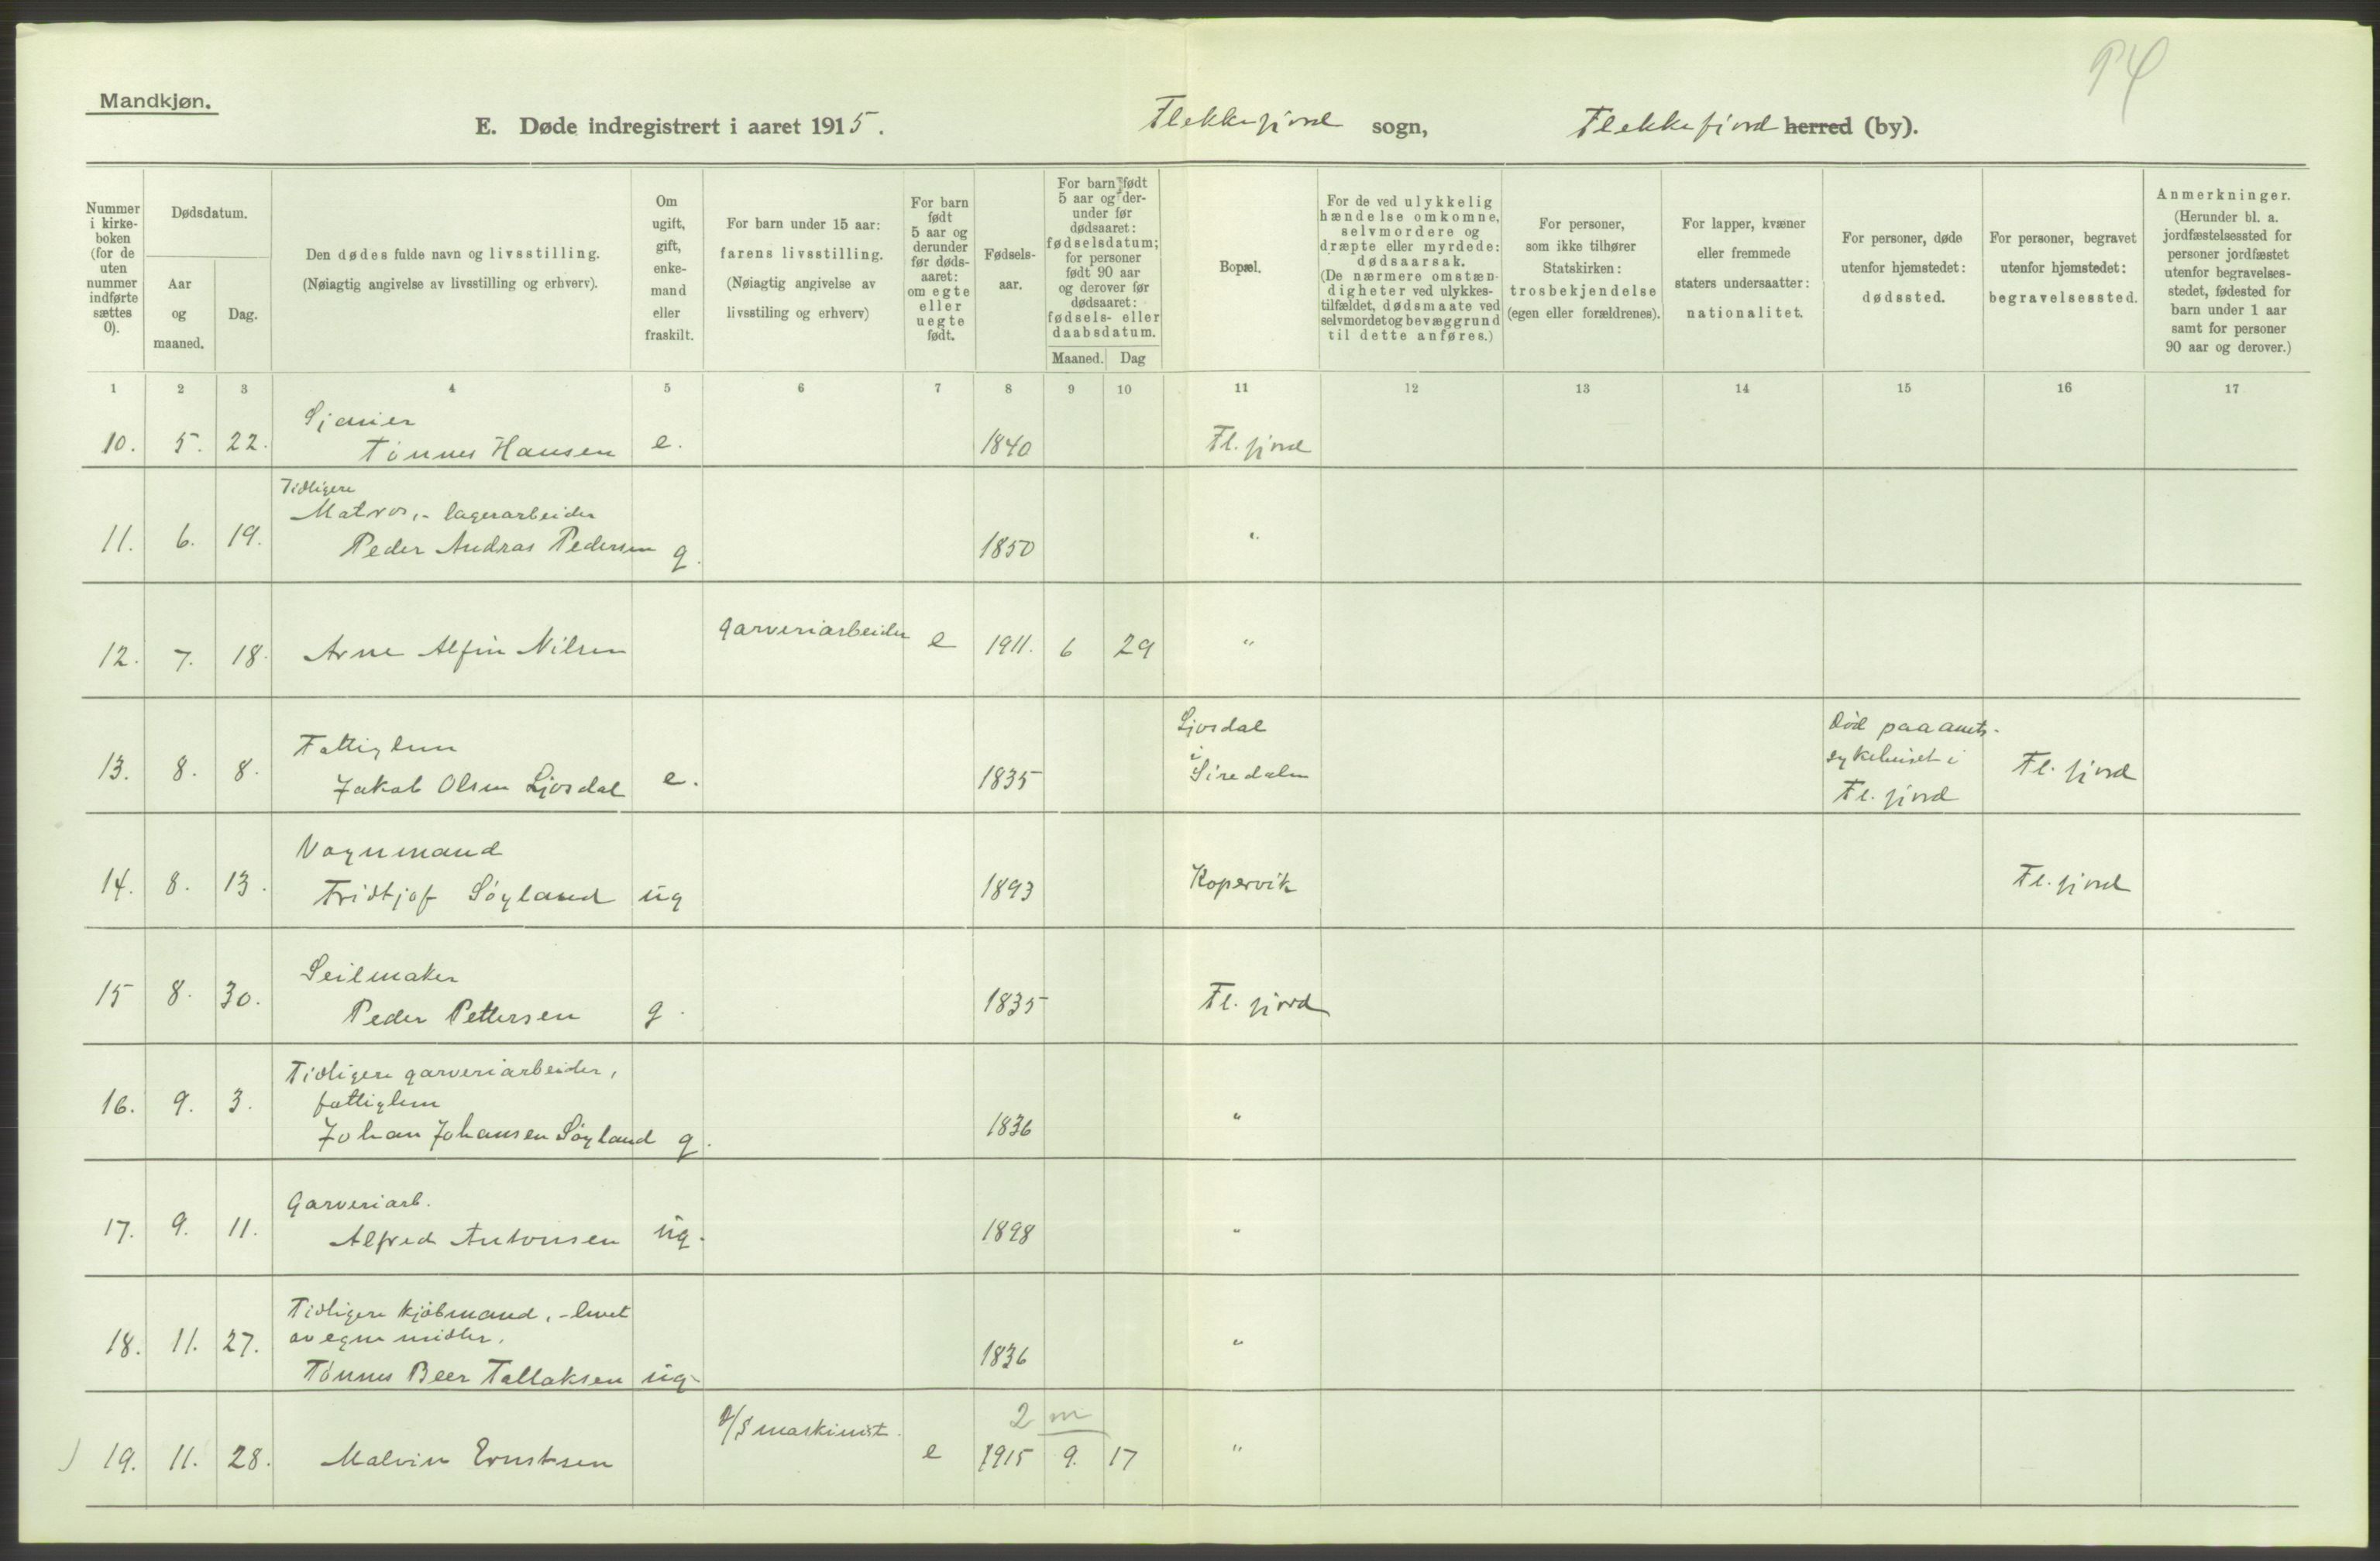 94
Mandkjøn.
E. Døde indregistrert i aaret 1915. Flekkefjord sogn, Flekkefjord herred (by).
Nummer i kirke-boken (for de uten nummer indførte sættes 0).
Dødsdatum.
Aar og maaned.
Dag.
Den dødes fulde navn og livsstilling.
(Nøiagtig angivelse av livsstilling og erhverv).
Om ugift, gift, enke-mand eller fraskilt.
For barn under 15 aar: farens livsstilling.
(Nøiagtig angivelse av livsstiling og erhverv)
For barn født 5 aar og derunder før døds-aaret: om egte eller uegte født.
Fødsels-aar.
For barn født 5 aar og der-under før dødsaaret: fødselsdatum; for personer født 90 aar og derover før dødsaaret: fødsels- eller daabsdatum.
Maaned. Dag
Bopæl.
For de ved ulykkelig hændelse omkomne, selvmordere og dræpte eller myrdede: dødsaarsak.
(De nærmere omstæn-digheter ved ulykkes-tilfældet, dødsmaate ved selvmordet og bevæggrund til dette anføres.)
For personer, som ikke tilhører Statskirken: trosbekjendelse (egen eller forældrenes).
For lapper, kvæner eller fremmede staters undersaatter: nationalitet.
For personer, døde utenfor hjemstedet: dødssted.
For personer, begravet utenfor hjemstedet: begravelsessted.
Anmerkninger.
(Herunder bl. a. jordfæstelsessted for personer jordfæstet utenfor begravelses-stedet, fødested for barn under 1 aar samt for personer 90 aar og derover.)
1 2 3 4 5 6 7 8 9 10 11 12 13 14 15 16 17
10. 5. 22. Tönnes Hansen e. 1840 Fl. fjord
Tidligere
Matros,- lagerarbeider
11. 6. 19. Peder Andras Pedersen g. 1850 "
12. 7. 18. Arne Alfin Nilsen garveriarbeider e 1911. 6 29 "
Fattiglem
13. 8. 8. Jakob Olsen Ljosdal e. 1835 Ljosdal i Siredalen Död paa amts-sykehuset i Fl. fjord Fl. fjord
Vognmand
14. 8. 13. Fridtjof Söyland ug 1893 Kopervik Fl. fjord
Seilmaker
15 8. 30. Peder Pettersen g. 1835 Fl. fjord
Tidligere garveriarbeider,
fattiglem
16. 9. 3. Johan Johansen Söyland g. 1836 "
Garveriarb.
17. 9. 11. Alfred Antonsen ug. 1898 "
Tidligere kjöbmand, - levet
av egne midler.
18. 11. 27. Tönnes Beer Tallaksen ug. 1836 "
2 m
19. 11. 28. Malvin Ernstsen D/S maskinist. e 1915 9. 17 "